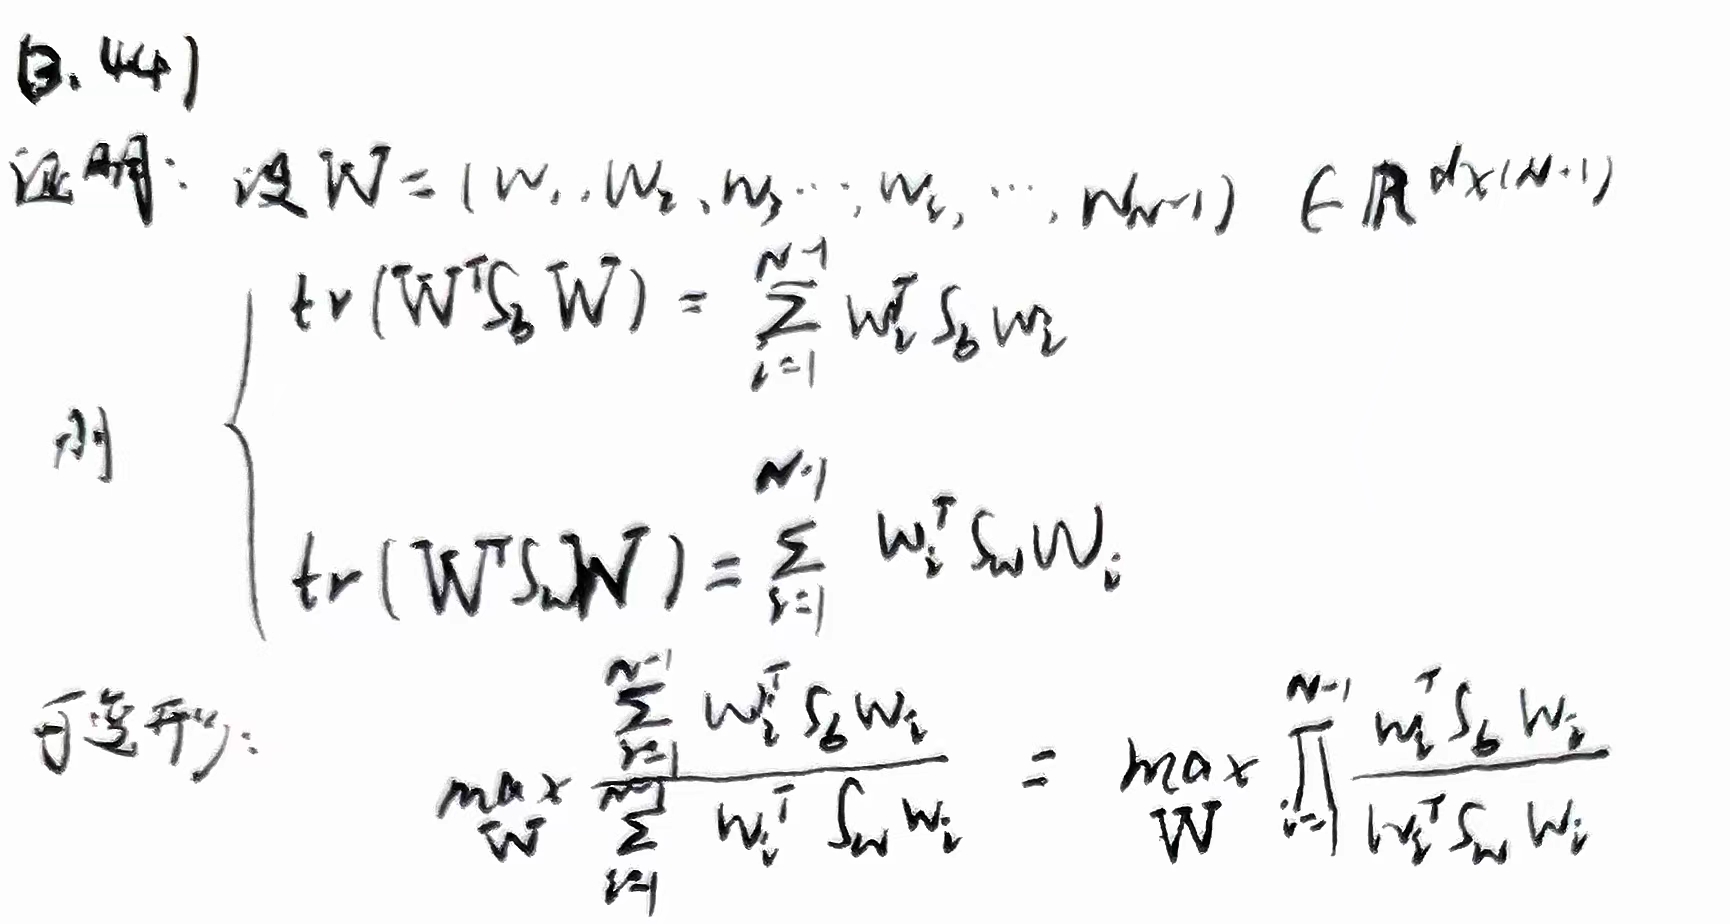 (3.44)
证明: 设 W = (w₁, w₂, w₃ ⋯, wᵢ, ⋯, w_{N-1}) ∈ ℝ^{d×(N-1)}
tr(WᵀS_bW) = ∑_{i=1}^{N-1} wᵢᵀ S_b wᵢ
则
tr(WᵀS_wW) = ∑_{i=1}^{N-1} wᵢᵀ S_w wᵢ
可变形: max_W \frac{∑_{i=1}^{N-1} wᵢᵀ S_b wᵢ}{∑_{i=1}^{N-1} wᵢᵀ S_w wᵢ} = max_W ∏_{i=1}^{N-1} \frac{wᵢᵀ S_b wᵢ}{wᵢᵀ S_w wᵢ}